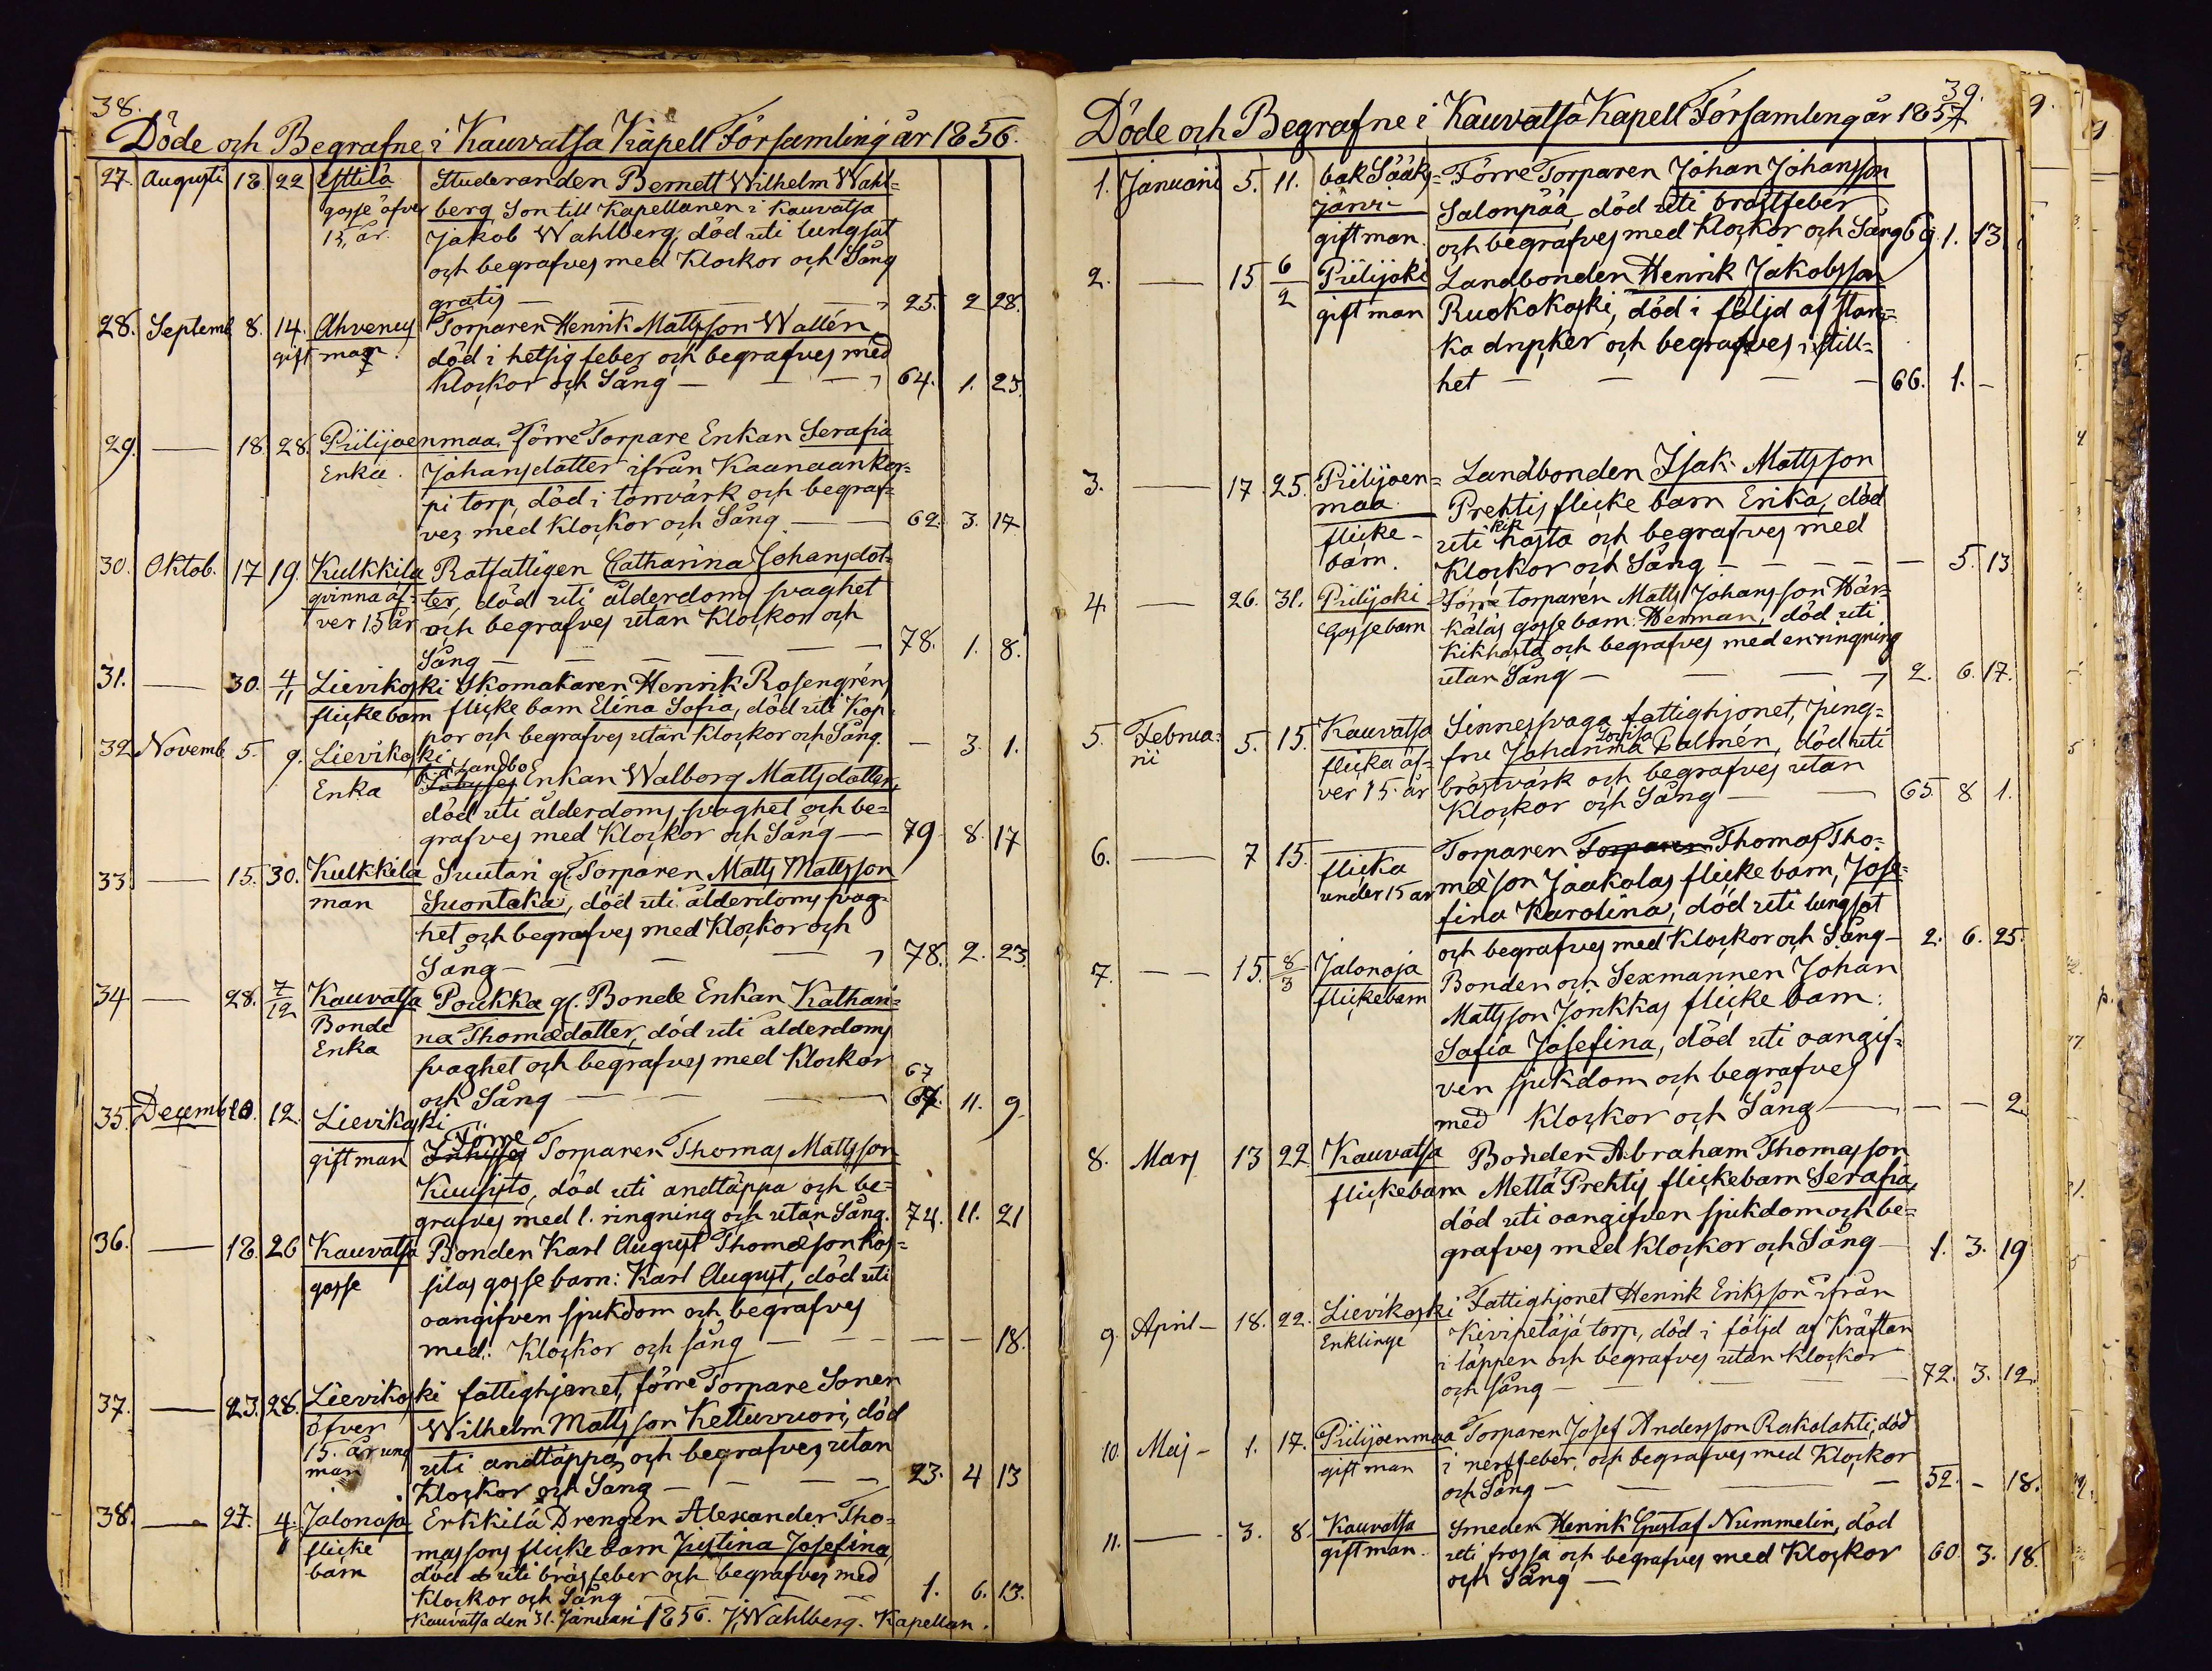 38.
Döde och Begrafne i Kauvatsa Kapell Församling år 1856.
27. Augusti 18. 22 Yttilä Studeranden Bernett Wilhelm Wahl=
gosse öfver berg, Son till Kapellanen i Kauvatsa
15, år. Jakob Wahlberg, död uti lungsot
och begrafves med Klockor och Sång
gratis — — — — 25. 2 28.
28. Septemb. 8. 14. Ahvenus Torparen Henrik Mattsson Wallén,
gift man. död i hetsig feber och begrafves med
Klockor och Sång — — — 64. 1. 23.
29. — 18. 28. Piilijoenmaa. förre Torpare Enkan Serafia
Enka. Johansdotter ifrån Kaanaankor=
pi torp, död i torrvärk och begraf=
ves med Klockor och Sång — 62. 3. 17.
30. Oktob. 17 19. Kulkkila Rotfattigen Catharina Johansdot=
qvinna öf= ter, död uti ålderdoms svaghet
ver 15 år och begrafves utan Klockor och
Sång — — — — — 78. 1. 8.
31. — 30. 4/11 Lievikoski Skomakaren Henrik Rosengréns
flickebarn flicke barn Elina Sofia, död uti Kop=
por och begrafves utan Klockor och Sång. — 3. 1.
32 Novemb. 5. 9. Lievikoski
Landbo
Enka Enkan Walborg Mattsdotter,
död uti ålderdoms svaghet och be=
grafves med Klockor och Sång — 79. 8. 17
33. — 15. 30. Kulkkila Suutari gl. Torparen Matts Mattsson
man Suontaka, död uti ålderdoms svag=
het och begrafves med Klockor och
Sång — — — 78. 2. 23.
34 — 28. 7/12 Kauvatsa Poukka gl. Bonde Enkan Kathari=
Bonde na Thomædotter, död uti ålderdoms
Enka svaghet och begrafves med Klockor
67
och Sång — — — 67. 11. 9.
35. Decemb. 10. 12. Lievikoski
Förre
gift man Inhyses Torparen Thomas Mattsson
Kuusisto, död uti andtäppa och be=
grafves med 1. ringning och utan Sång. 74. 11. 21
36. — 18. 26 Kauvatsa Bonden Karl August Thomæson Ros=
gosse silas gosse barn: Karl August, död uti
oangifven sjukdom och begrafves
med: Klockor och sång — — — — 18.
37. — 23. 28. Lievikoski fattighjonet, förre Torpare Sonen
öfver Wilhelm Mattsson Kettuvuori, död
15. år ung uti andtäppa och begrafves utan
man Klockor och Sång — — — 23. 4 13
38. — 27. 4/1 Jalonoja Erkkilä Drengen Alexander Tho=
flicke massons flicke barn Justina Josefina,
barn död uti bröstfeber och begrafves med
Klockor och Sång — — — 1. 6. 13.
Kauvatsa den 31. Januari 1856. J. Wahlberg. Kapellan.
39.
Döde och Begrafne i Kauvatsa Kapell Församling år 1857
1. Januari 5. 11. bak Sääks= Förre Torparen Johan Johansson
järvi Salonpää, död uti bröstfeber
gift man. och begrafves med Klockor och Sång 69. 1. 13.
2. — 15 6/2 Piilijoki Landbonden Henrik Jakobsson
gift man Ruokokoski, död i följd af star=
ka drycker och begrafves i still=
het — — — — 66. 1. -
3. — 17. 25. Piilijoen= Landbonden Isak Mattsson
maa Prehtis flicke barn Erika, död
kik
flicke= uti hosta och begrafves med
barn. Klockor och Sång — — — — 5. 13
4 — 26. 31. Piilijoki Förre torparen Matts Johansson Här=
Gossebarn kälas gosse barn. Herman, död uti
Kikhosta och begrafves med en ringning
utan Sång — — — 2. 6. 17.
5. Februa= 5. 15. Kauvatsa Sinnessvaga fattighjonet, Jung=
Lovisa
ri flicka öf= fru Johanna Palmén, död uti
ver 15. år bröstvärk och begrafves utan
Klockor och Sång — — 65. 8 1.
6. — 7 15. — Torparen Torparen Thomas Tho=
flicka mæson Jaakolas flicke barn, Jose=
under 15 år fina Karolina, död uti lungsot
och begrafves med Klockor och Sång — 2. 6. 25.
7. — 15. 8/3 Jalonoja Bonden och Sexmannen Johan
flickebarn Mattsson Jonkkas flicke barn:
Safia Josefina, död uti oangif=
ven sjukdom och begrafves
med Klockor och Sång — — — 2.
8. Mars 13 22 Kauvatsa Bonden Abraham Thomasson
flickebarn Mettä Prehtis flickebarn Serafia,
död uti oangifven sjukdom och be=
grafves med Klockor och Sång — 1. 3. 19
9. April — 18. 22. Lievikoski Fattighjonet Henrik Eriksson ifrån
Enklinge Kivipetäjä torp, död i följd af Kräftan
i läppen och begrafves utan Klockor
och sång — — — 72. 3. 12.
10. Maj — 1. 17. Piilijoenmaa Torparen Josef Andersson Rakolahti, död
gift man i nerffeber, och begrafves med Klockor
och Sång — — — 52. - 18.
11. — 3. 8. Kauvatsa Smeden Henrik Gustaf Nummelin, död
gift man. uti frossa och begrafves med Klockor 60. 3. 18.
och Sång —